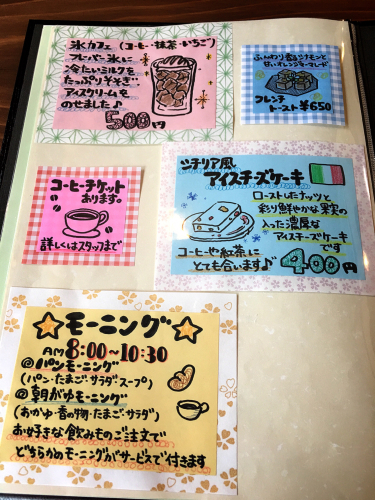 氷カフェ(コーヒー・抹茶・いちご)
フレーバー氷に
冷たいミルクを
たっぷりそそぎ
アイスクリームを
のせました♪
500円
ふんわり香るシナモンと
甘いオレンジマーマレード
フレンチ
トースト ¥650
コーヒーチケット
あります。
詳しくはスタッフまで
シチリア風
アイスチーズケーキ
ローストしたナッツと
彩り鮮やかな果実の
入った濃厚な
アイスチーズケーキ
です
コーヒーや紅茶に
とても合います♪
400円
モーニング
AM 8:00~10:30
◎パンモーニング
(パン・たまご・サラダ スープ)
◎朝がゆモーニング
(おかゆ・香の物・たまご・サラダ)
お好きな飲みものご注文で
どちらかのモーニングがサービスで付きます